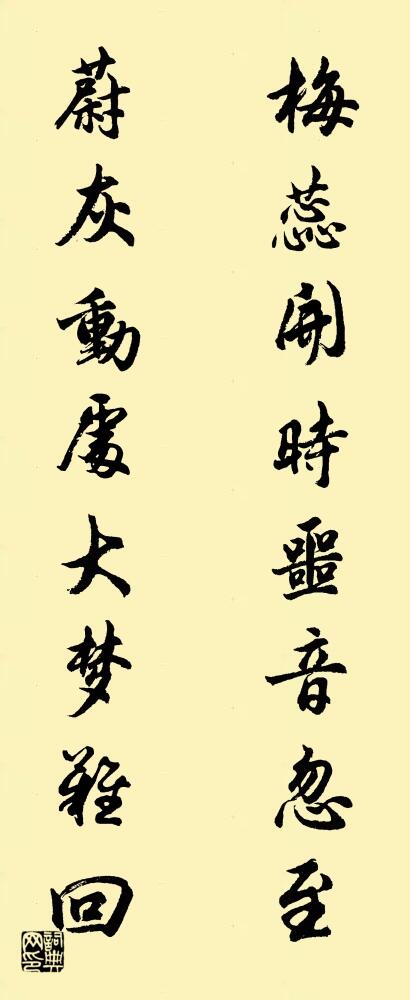 梅蕊開時噩音忽至
蔚灰動處大梦難回
詞典
网印